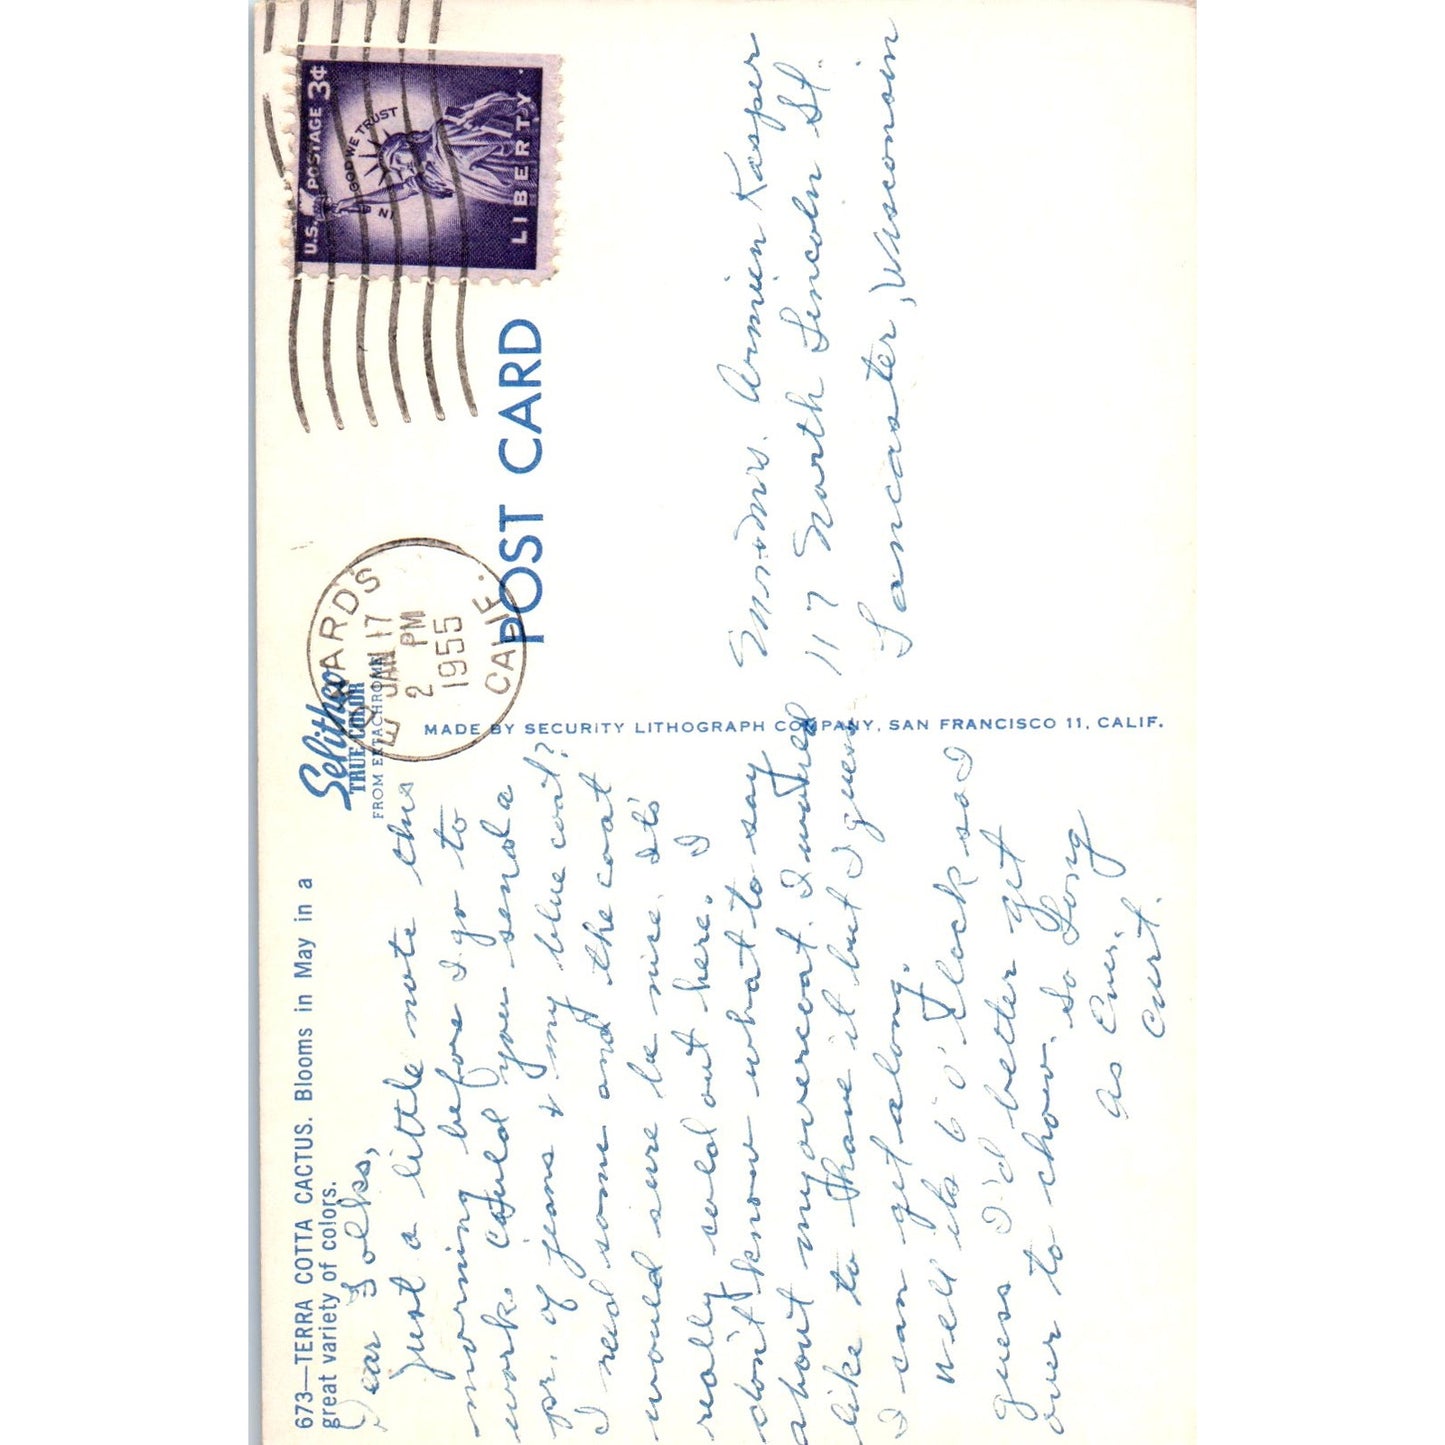 673—TERRA COTTA CACTUS. Blooms in May in a
great variety of colors.
Dear Folks,
Just a little note this
morning before I go to
work. Could you send a
pr. of jeans & my blue coat?
I need some and the coat
would sure be nice. It's
really cold out here. I
don't know what to say
about my overcoat. I would
like to have it but I guess
I can get along.
Well its 6 o'clock so I
guess I'd better get
over to chow. So Long
As Ever,
Curt.
Selithco
TRUE COLOR
FROM EKTACHROME
MADE BY SECURITY LITHOGRAPH COMPANY, SAN FRANCISCO 11, CALIF.
POST CARD
EDWARDS
JAN 17
2 PM
1955
CALIF.
U.S. POSTAGE 3¢
IN GOD WE TRUST
LIBERTY
Mr. & Mrs. Armien Kasper
117 North Lincoln St.
Lancaster, Wisconsin